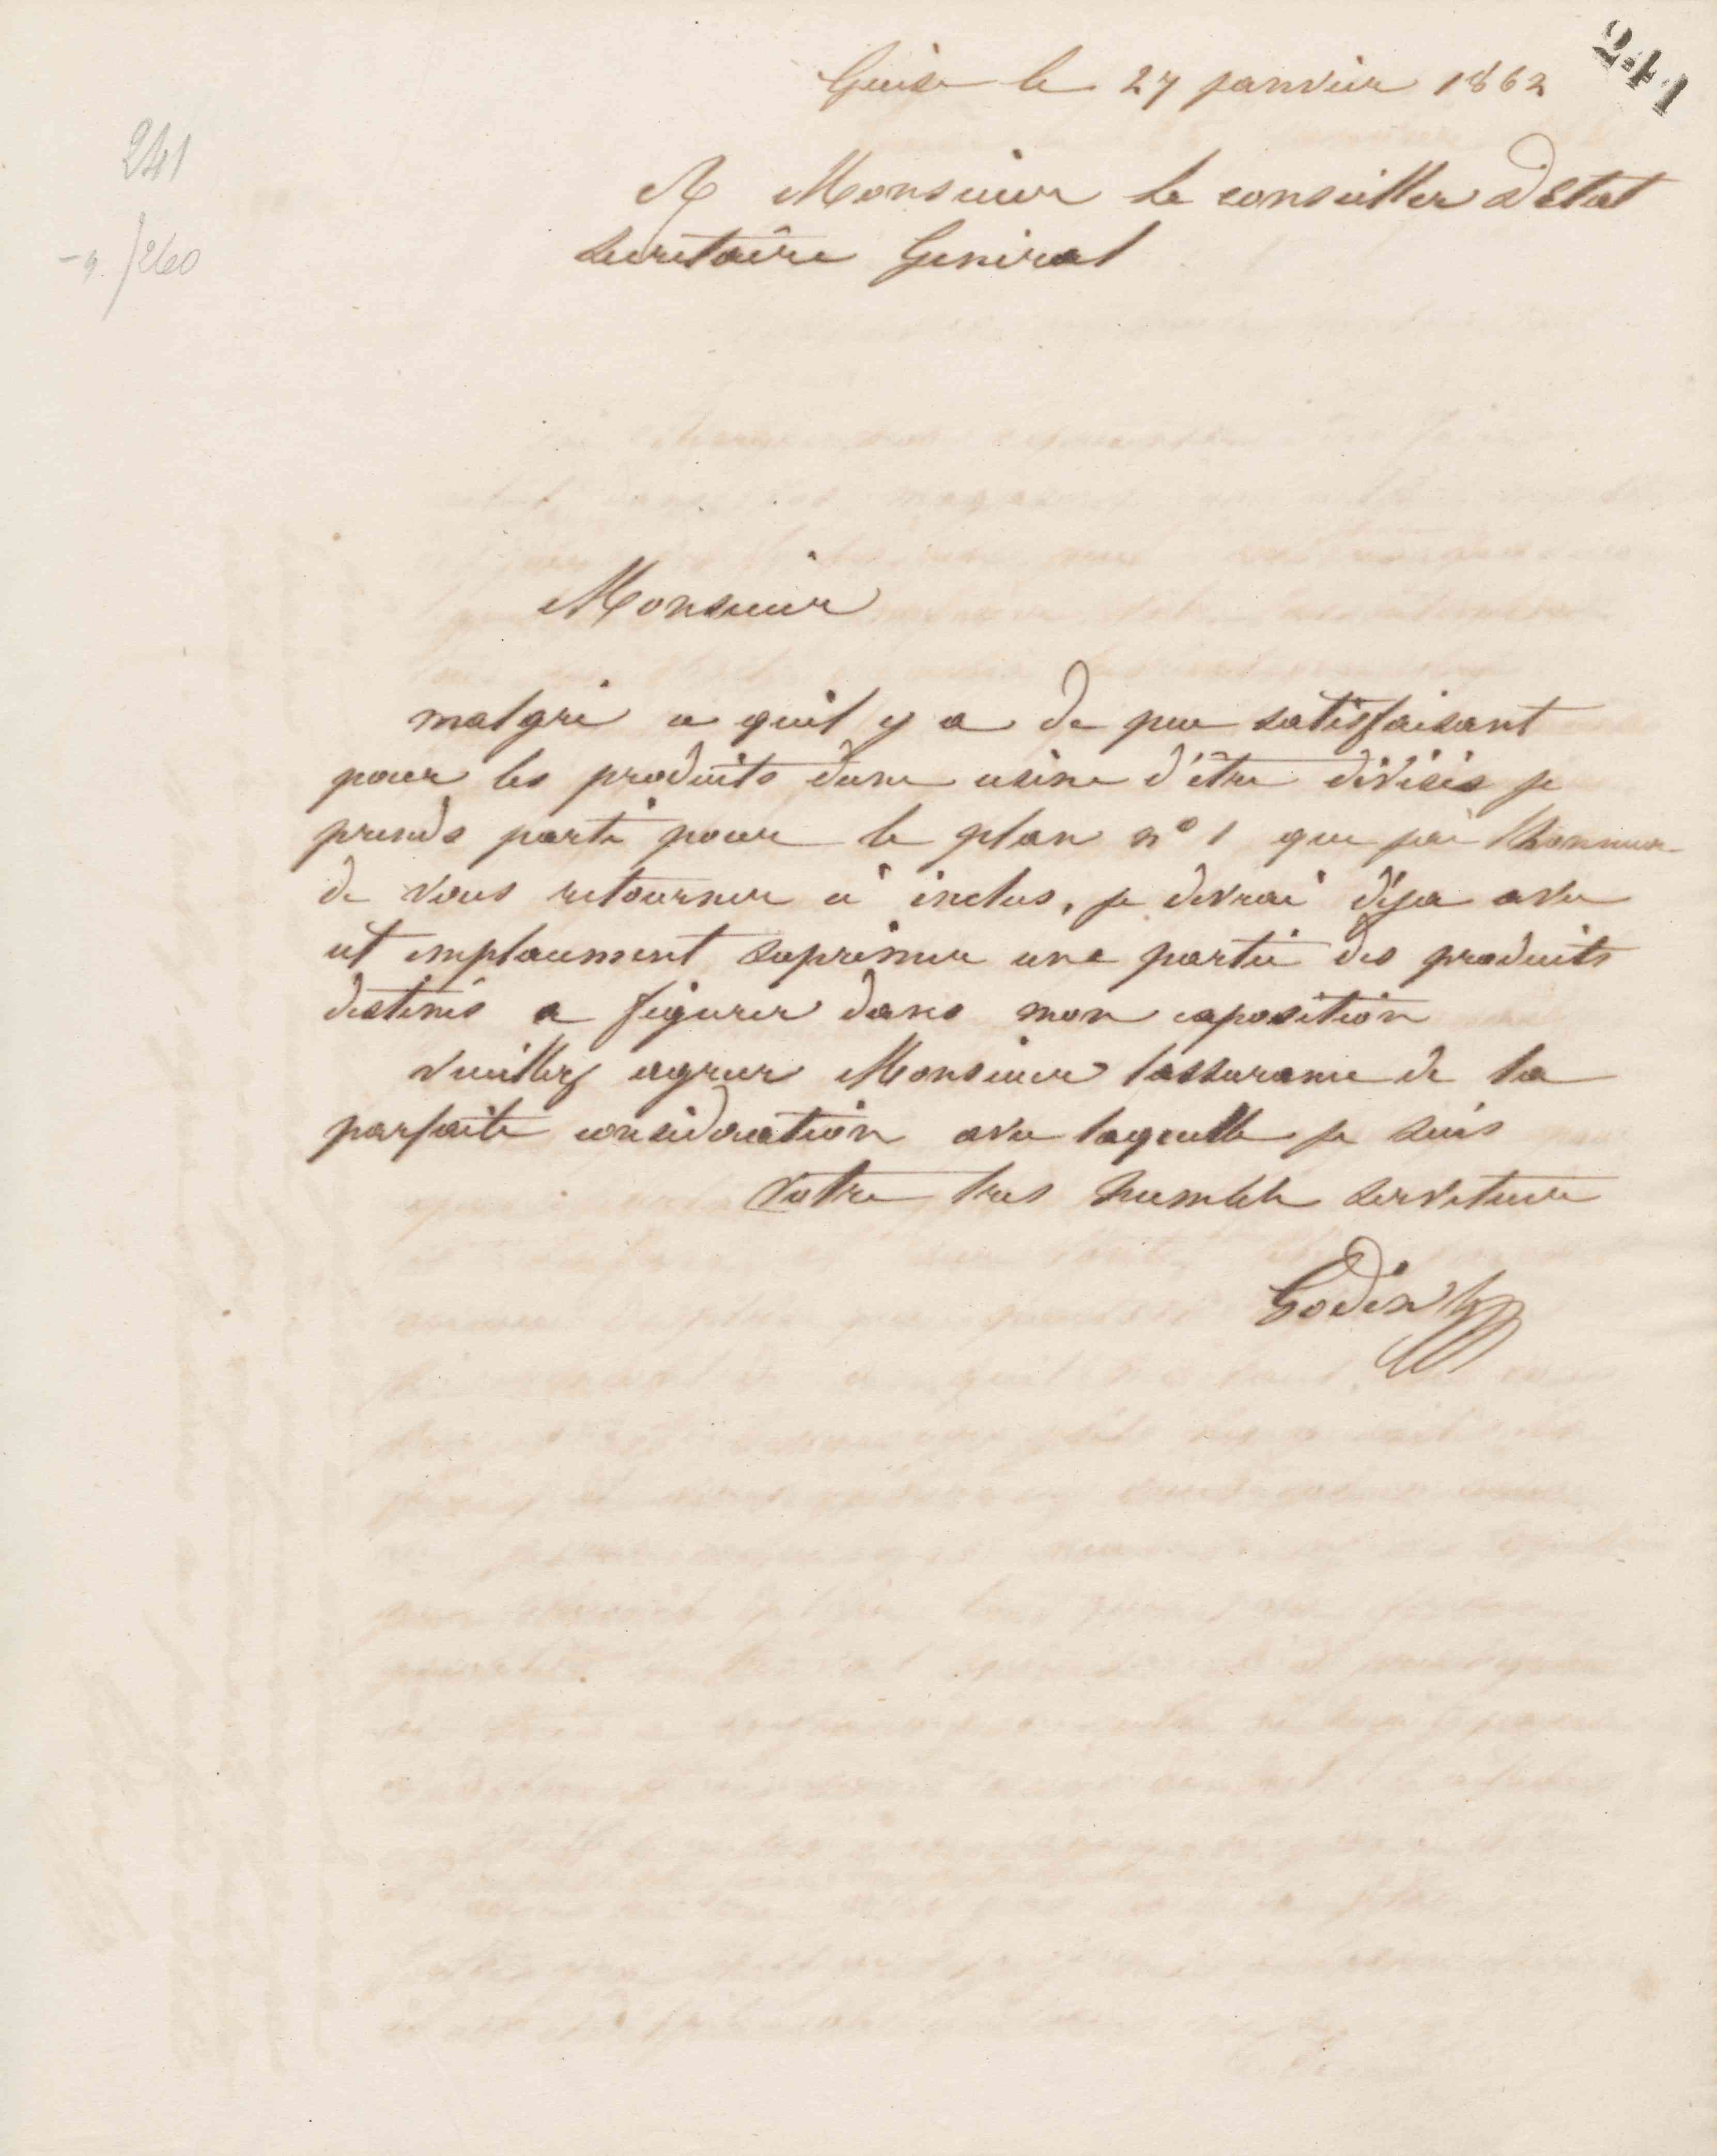 241
Guise le 27 janvier 1862
241
-9. /260
A Monsieur le conseiller d'Etat
secretaire General
Monsieur
malgré ce quil y a de peu satisfaisant
pour les produits dune usine d'être divisés je
prends parti pour le plan n° 1 que jai lhonneur
de vous retourner ci inclus, je devrai déja avec
cet emplacement suprimer une partie des produits
destinés a figurer dans mon exposition
veuillez agreer Monsieur lassurance de la
parfaite consideration avec laquelle je suis
Votre tres humble serviteur
Godin